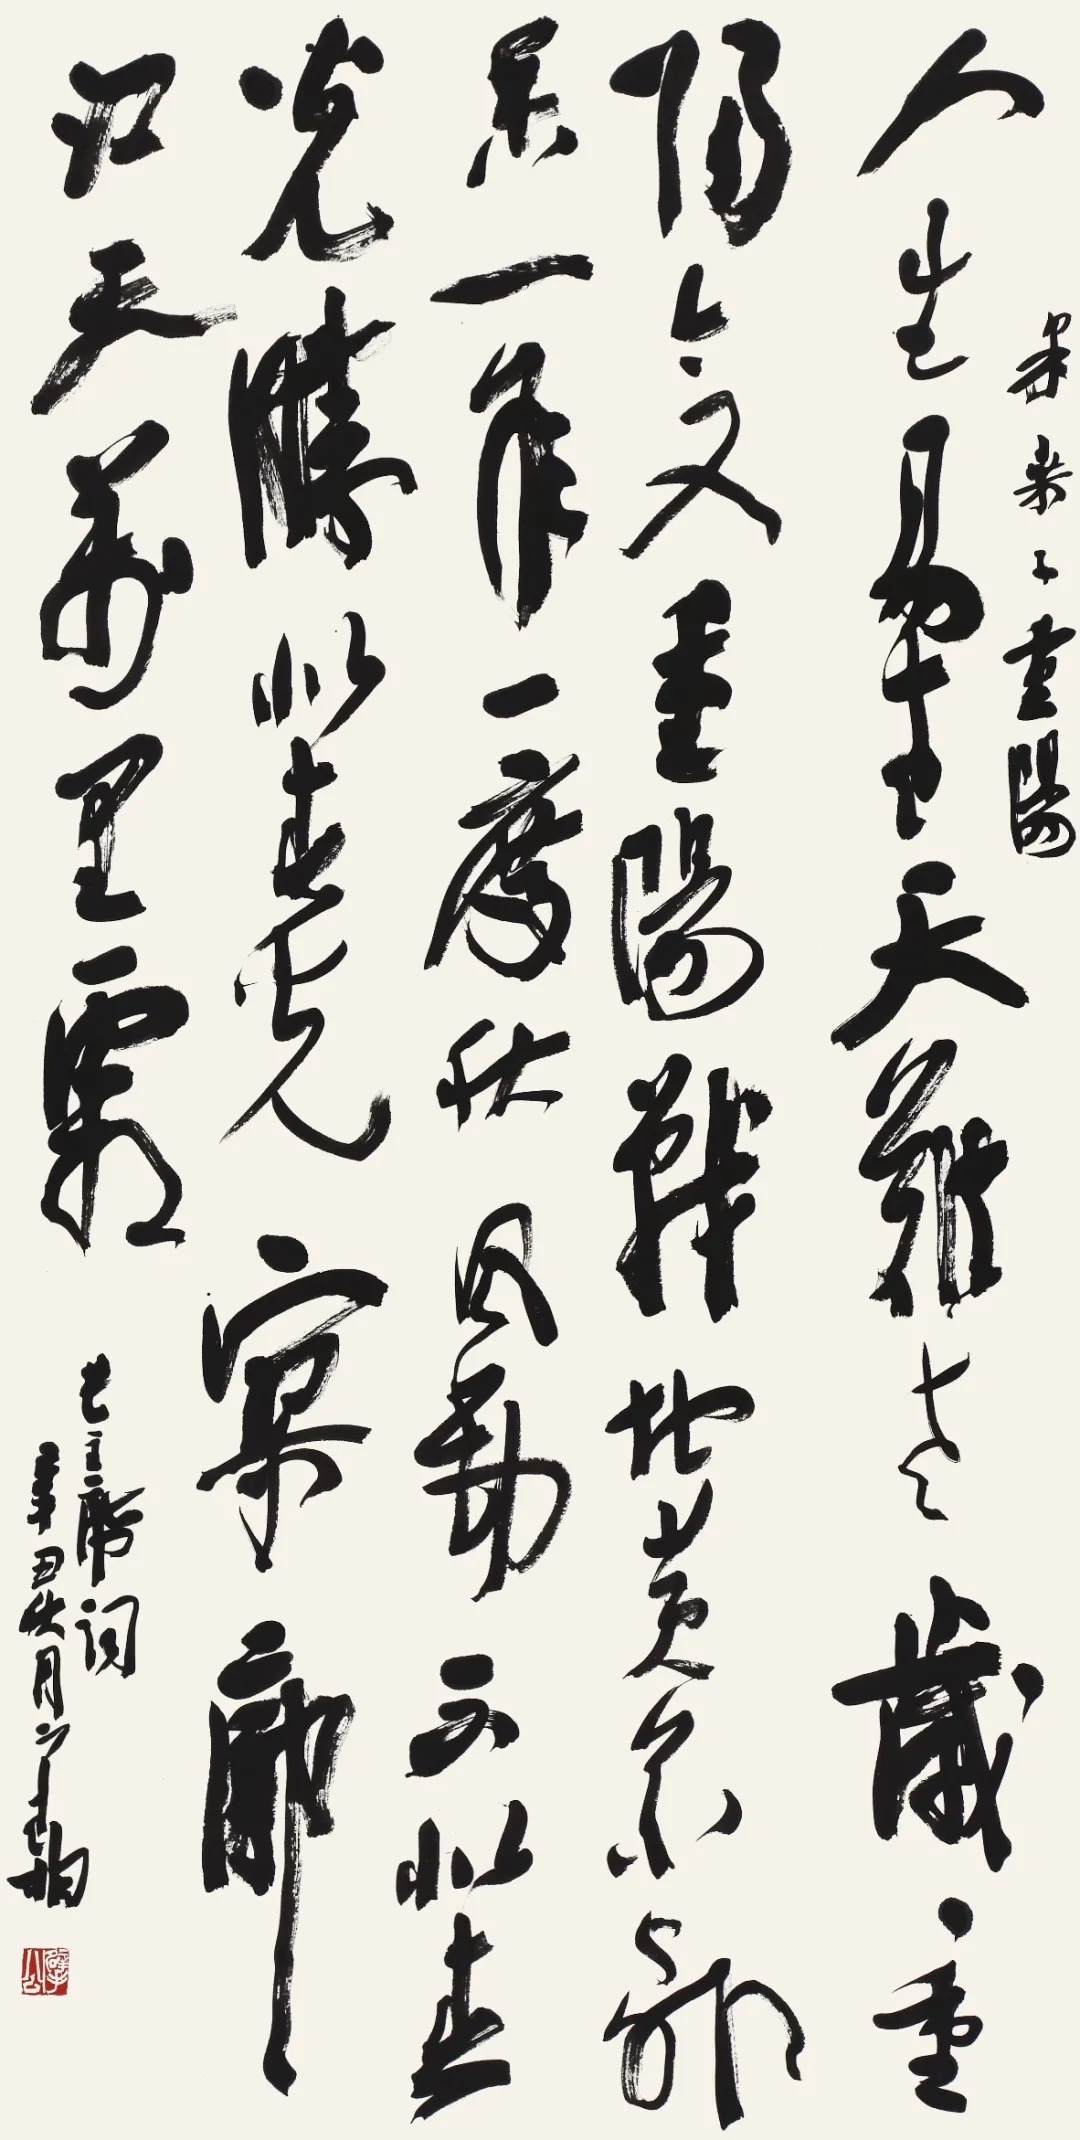 采桑子重陽
人生易老天難老歲〻重
陽今又重陽戰地黄花分外
香一年一度秋風勁不似春
光勝似春光寥廓
江天萬里霜
毛主席詞
辛丑秋月